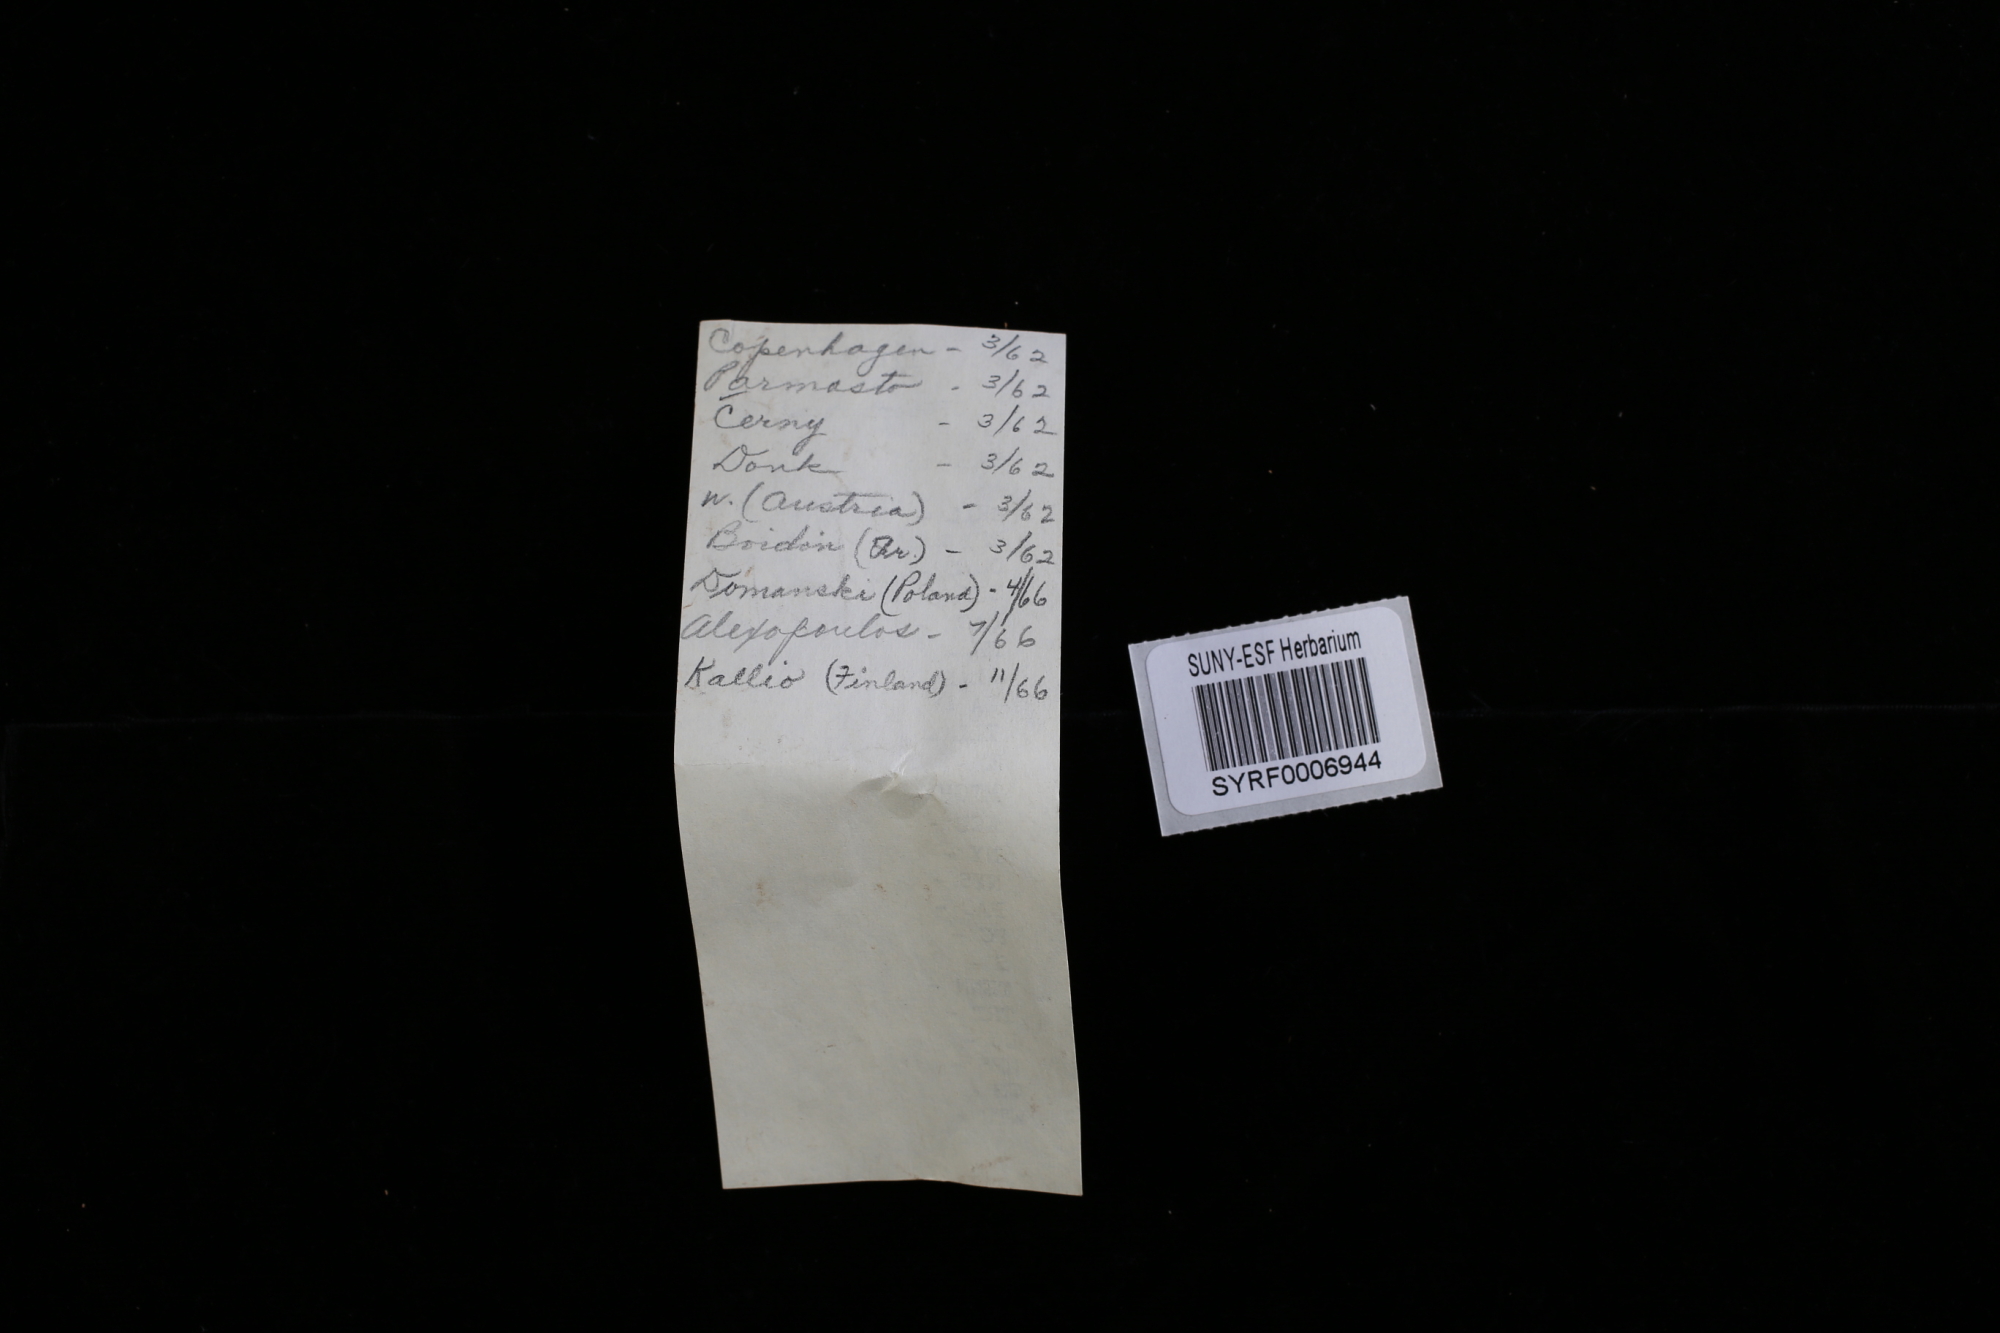 Copenhagen - 3/62
Parmasto - 3/62
Cerny - 3/62
Donk - 3/62
W. (Austria) - 3/62
Boidin (Fr.) - 3/62
Domanski (Poland) - 4/66
Alexopoulos - 7/66
Kallio (Finland) - 11/66
SUNY-ESF Herbarium
SYRF0006944